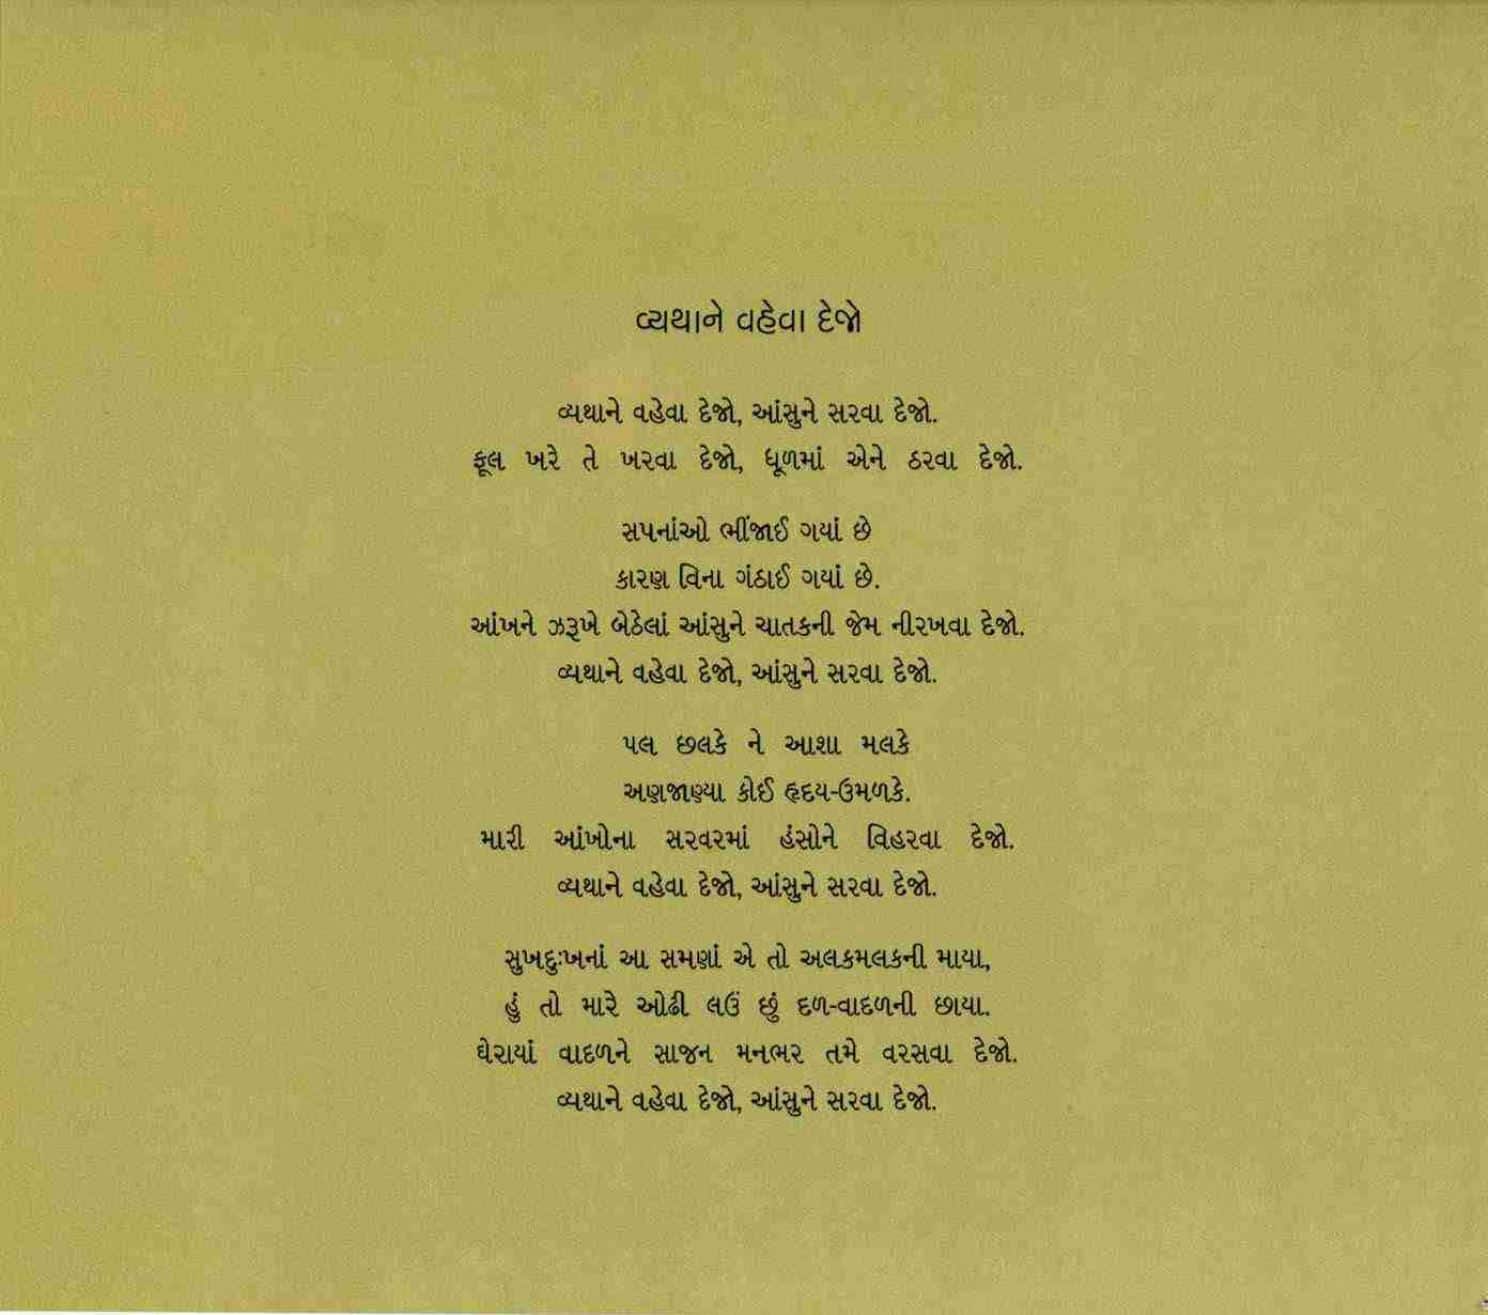 વ્યથાને વહેવા દેજો
વ્યથાને વહેવા દેજો, આંસુને સરવા દેજો.
ફૂલ ખરે તે ખરવા દેજો, ધૂળમાં એને ઠરવા દેજો.
સપનાંઓ ભીંજાઈ ગયાં છે
કારણ વિના ગંઠાઈ ગયાં છે.
આંખને ઝરૂખે બેઠેલાં આંસુને ચાતકની જેમ નીરખવા દેજો.
વ્યથાને વહેવા દેજો, આંસુને સરવા દેજો.
પલ છલકે ને આશા મલકે
અણજાણ્યા કોઈ હૃદય-ઉમળકે.
મારી આંખોના સરવરમાં હંસોને વિહરવા દેજો.
વ્યથાને વહેવા દેજો, આંસુને સરવા દેજો.
સુખદુઃખનાં આ સમણાં એ તો અલકમલકની માયા,
હું તો મારે ઓઢી લઉં છું દળ-વાદળની છાયા.
ઘેરાયાં વાદળને સાજન મનભર તમે વરસવા દેજો.
વ્યથાને વહેવા દેજો, આંસુને સરવા દેજો.